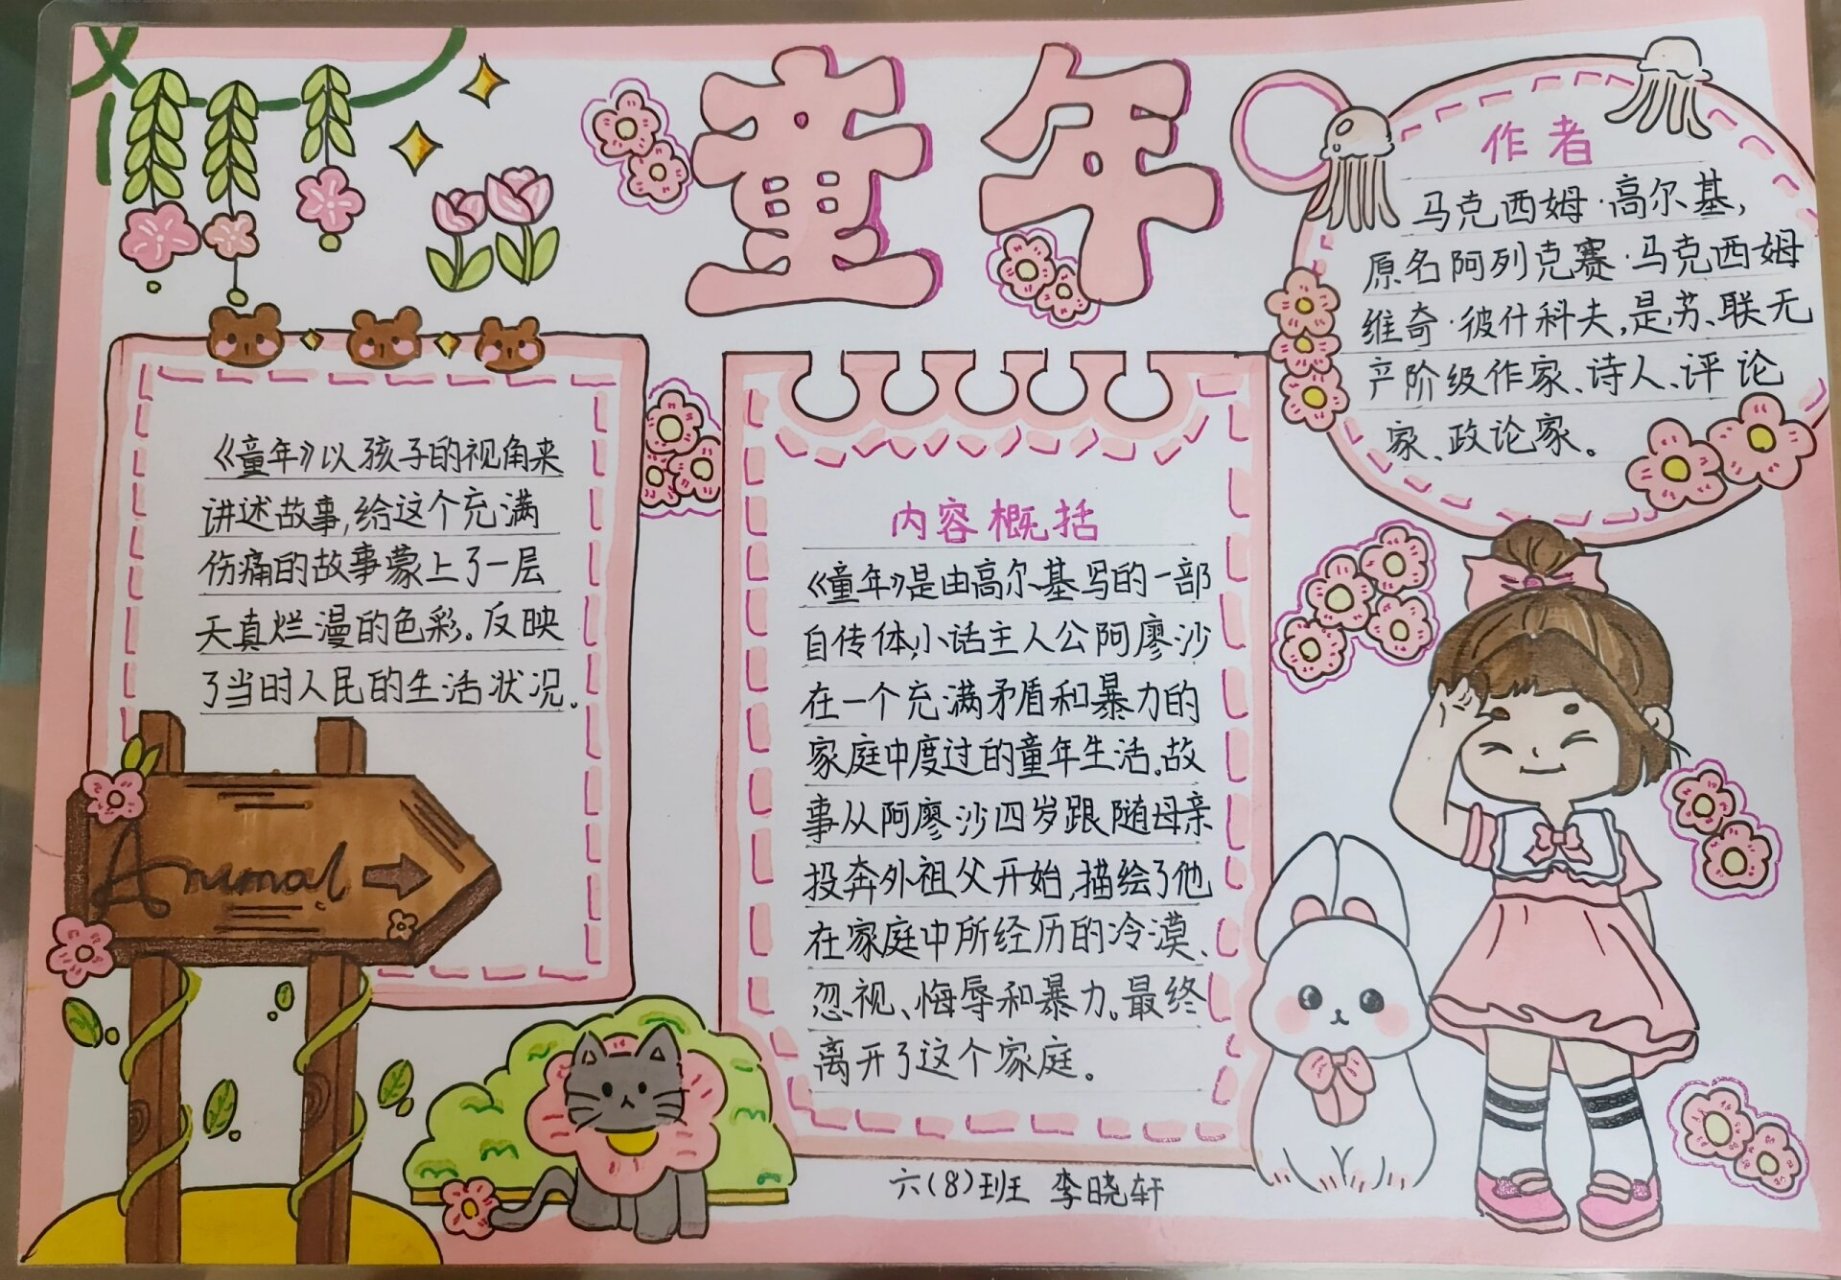 童年
作者
马克西姆·高尔基,
原名阿列克赛·马克西姆
维奇·彼什科夫,是苏、联无
产阶级作家、诗人、评论
家、政论家。
《童年》以孩子的视角来
讲述故事,给这个充满
伤痛的故事蒙上了一层
天真烂漫的色彩。反映
了当时人民的生活状况。
Animal
内容概括
《童年》是由高尔基写的一部
自传体,小话主人公阿廖沙
在一个充满矛盾和暴力的
家庭中度过的童年生活。故
事从阿廖沙四岁跟随母亲
投奔外祖父开始,描绘了他
在家庭中所经历的冷漠、
忽视、侮辱和暴力。最终
离开了这个家庭。
六(8)班 李晓轩